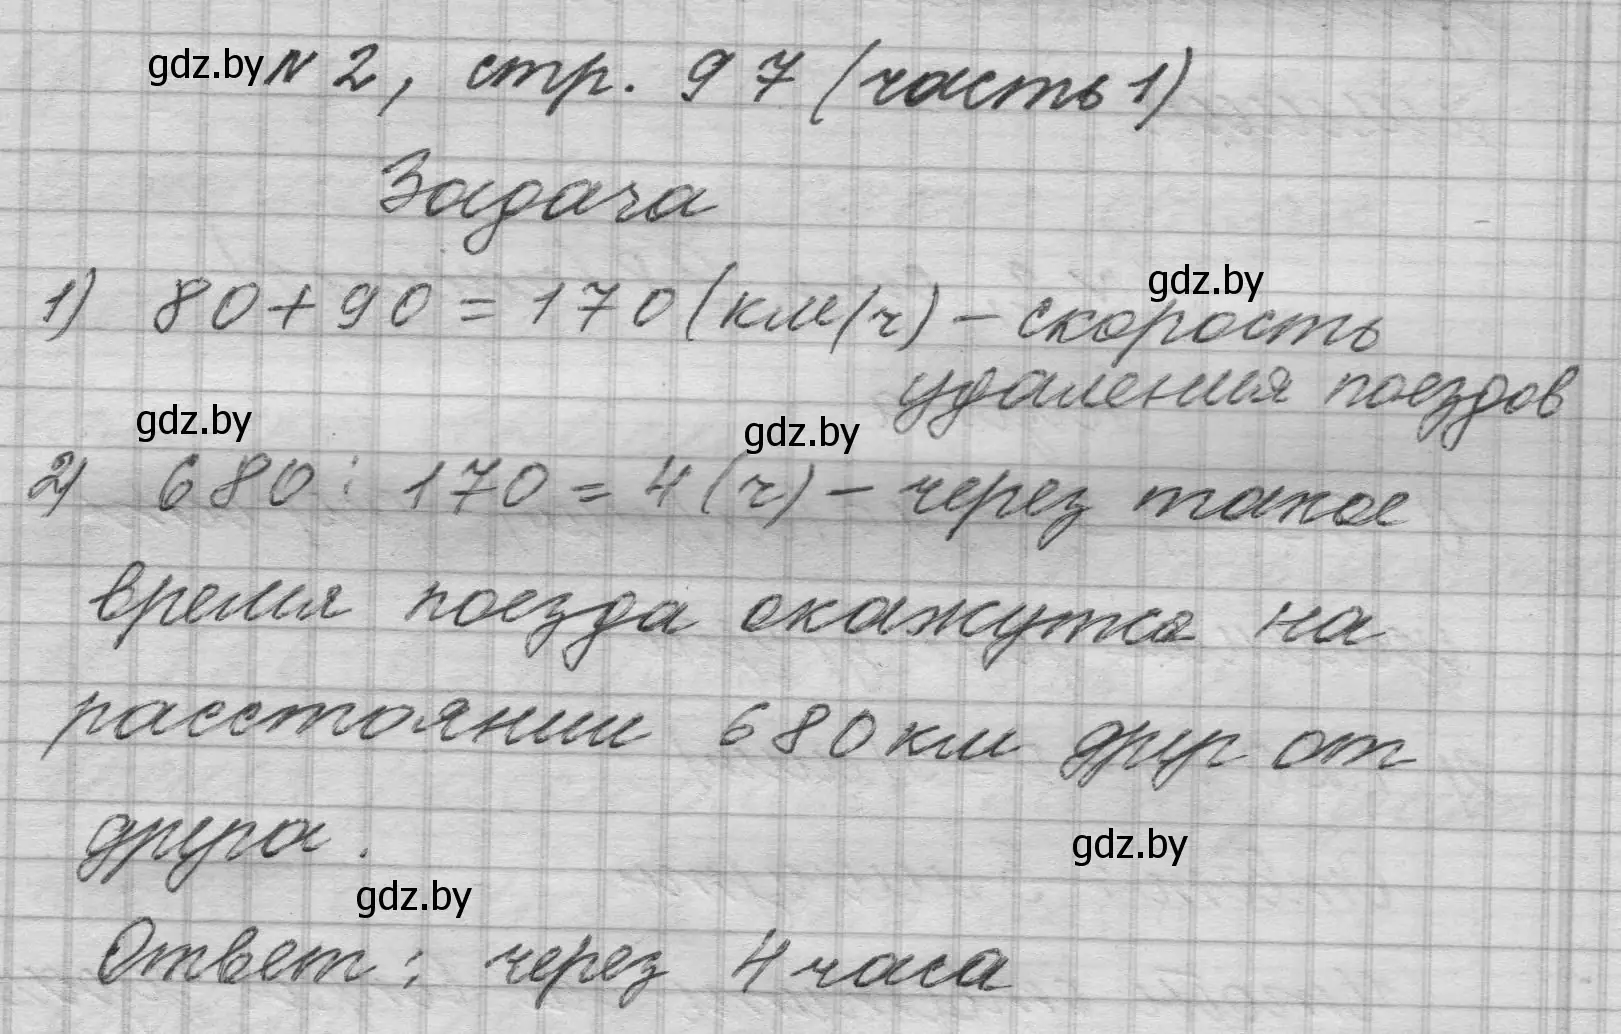 gdz.by № 2, стр. 97 (часть 1)
Задача
gdz.by
1) 80 + 90 = 170 (км/ч) – скорость
удаления поездов
gdz.by gdz.by
2) 680 : 170 = 4 (ч) – через такое
время поезда окажутся на
расстоянии 680 км друг от
друга.
gdz.by
gdz.by
Ответ: через 4 часа